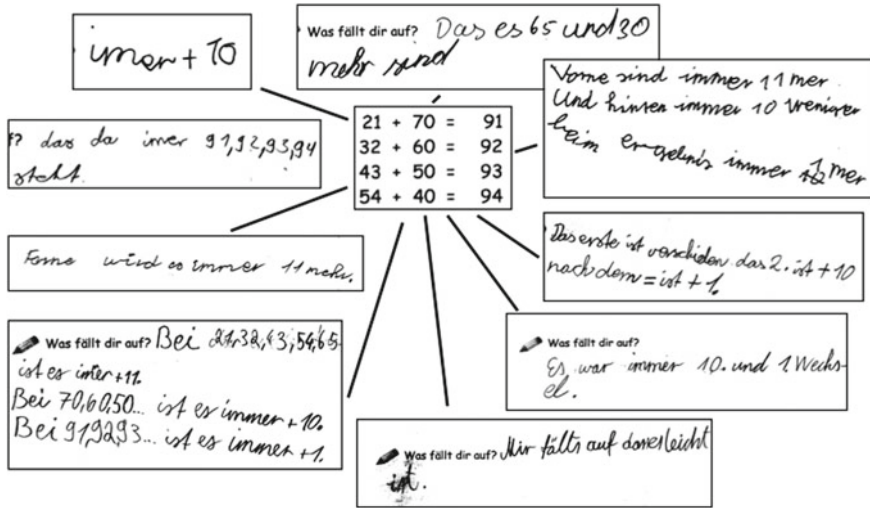 imer + 10
Was fällt dir auf? Das es 65 und 30
mehr sind
Vorne sind immer 11 mer
Und hinten immer 10 weniger
beim ergebnis immer 1 mer
21 + 70 = 91
32 + 60 = 92
43 + 50 = 93
54 + 40 = 94
? das da imer 91,92,93,94
steht.
Forne wird es immer 11 mehr.
Das erste ist verschiden das 2. ist + 10
nach dem = ist + 1.
Was fällt dir auf? Bei 21,32,43,54,65
ist es imer +11.
Bei 70,60,50... ist es immer +10.
Bei 91,92,93... ist es immer +1.
Was fällt dir auf?
Es war immer 10. und 1. Wechs-
el.
Was fällt dir auf? Mir fälts auf das es leicht
ist.